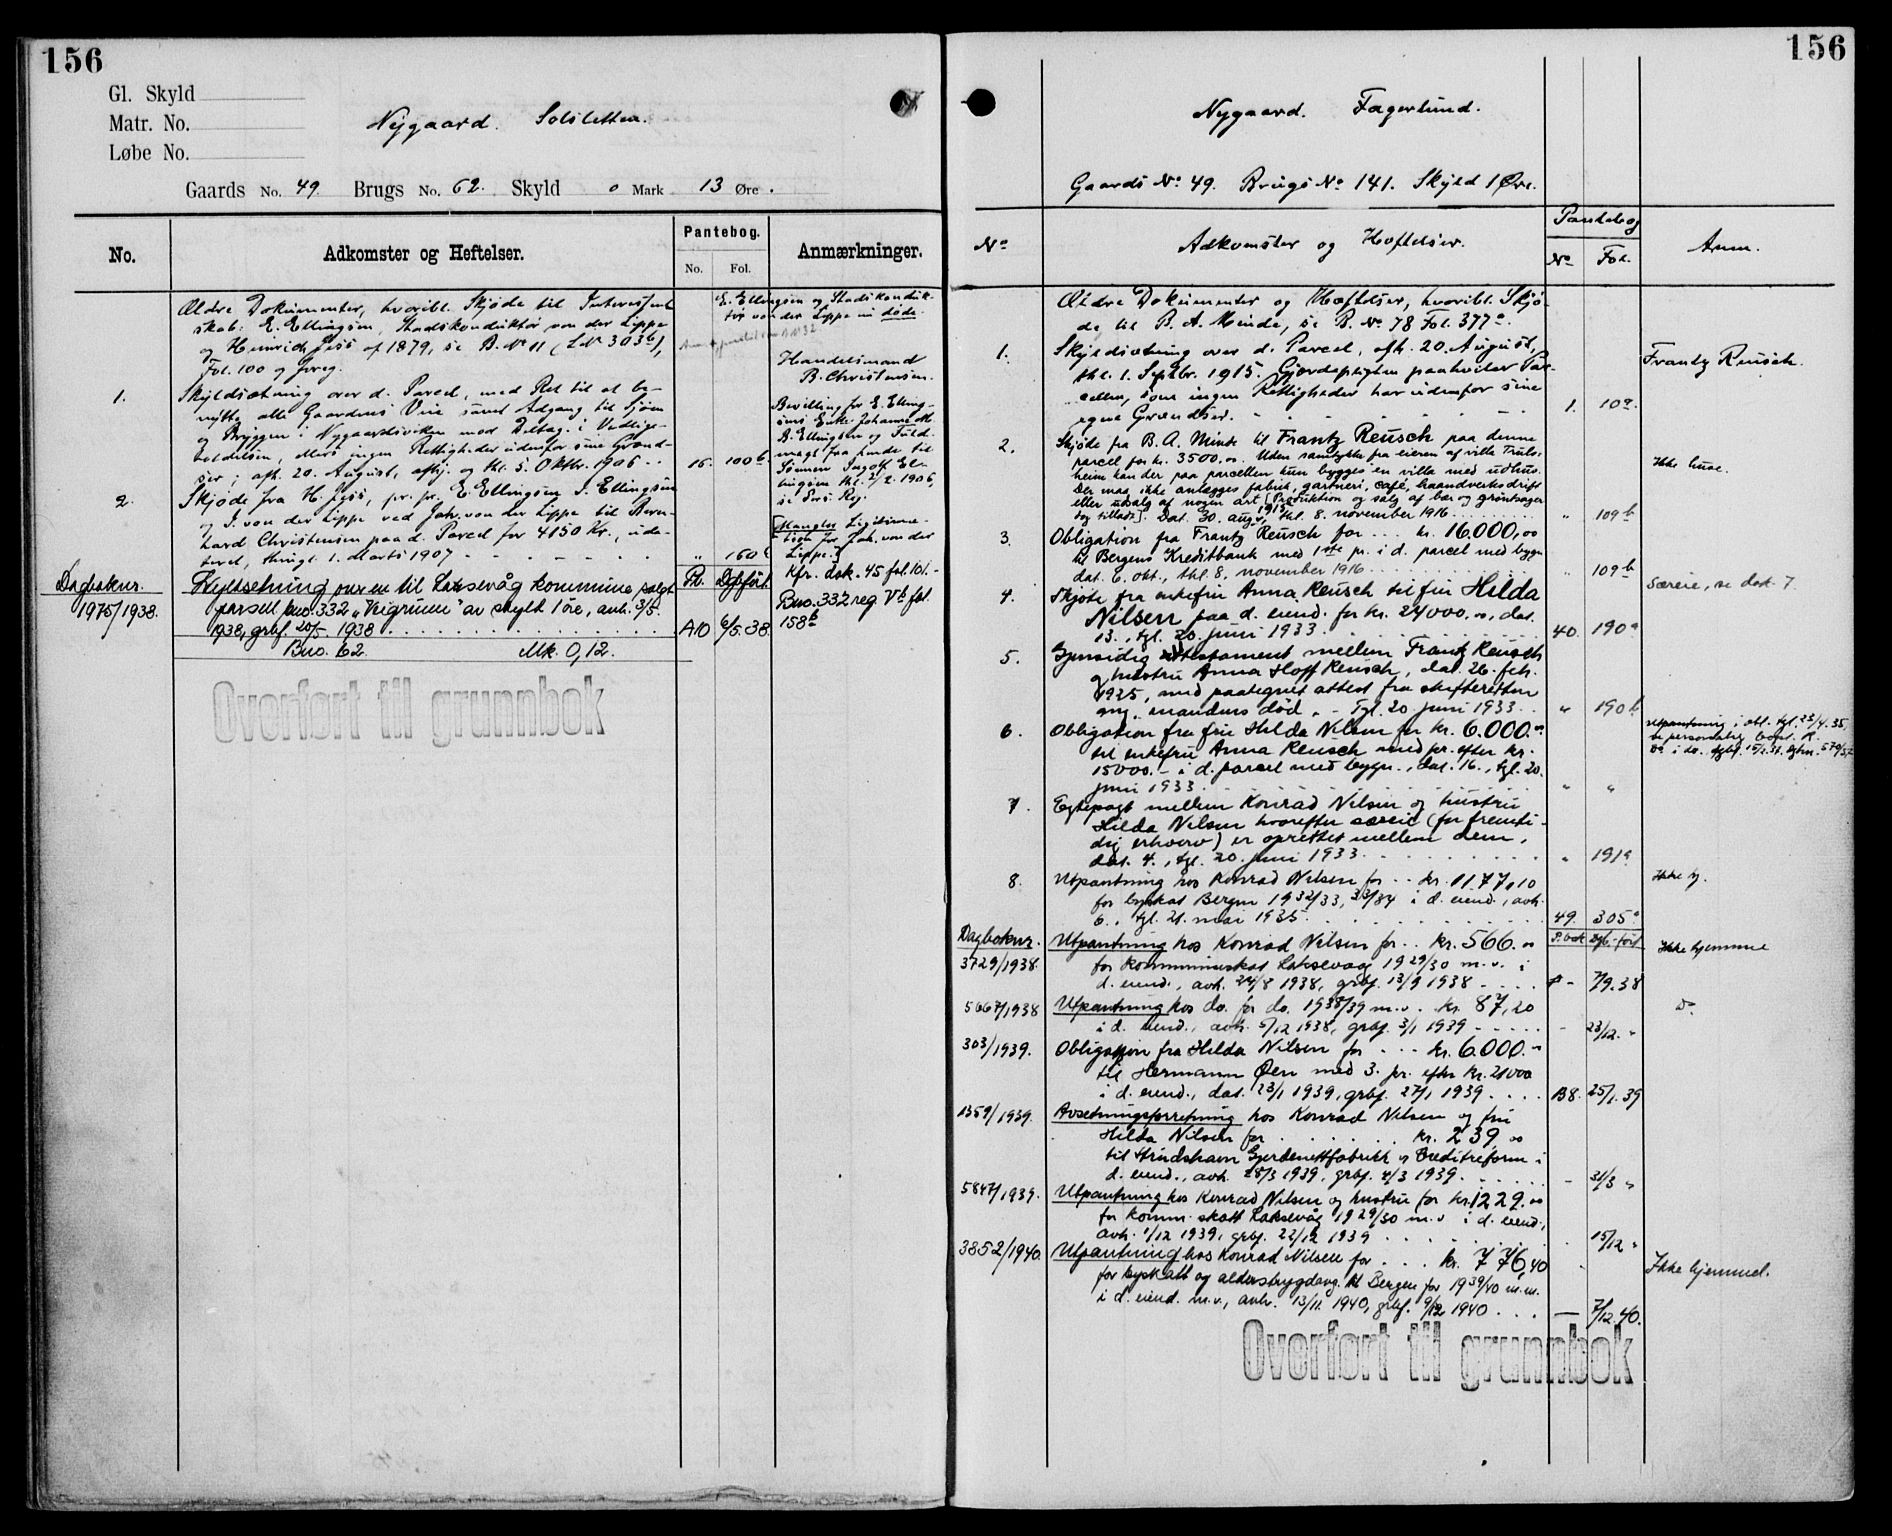 156
Gl. Skyld
Matr. No.
Løbe No.
Nygaard. Solsletten.
Gaards No. 49. Brugs No. 62. Skyld 0 Mark 13 Øre.
No.
Adkomster og Heftelser.
Pantebog.
No. Fol.
Anmærkninger.
Ældre Dokumenter, hvoribl. Skjøde til Interessent
skab: E. Ellingsen, Stadskonduktør von der Lippe
og Heinrich Jess af 1879, se B. No 11 (L.Nr 303b),
Fol. 100 og forrig.
E. Ellingsen og Stadskonduk-
tør von der Lippe nu døde.
Handelsmand
B. Christensen.
1. Skyldsætning over d. Parcel, med Ret til at be-
nytte alle Gaardens Veie samt Adgang til Sjøen
og Bryggen i Nygaardsviken mod Deltag. i Vedlige-
holdelsen, ellers ingen Rettigheder udenfor sine Grænd-
ser; afh. 20. August, afhj. og thl. 5. Oktbr. 1906 . . 15. 100b.
Bevilling for E. Elling-
sens Enke Johanne M.
D. Ellingsen og Fuld-
magt fra hende til
Sønnen Ingolf El-
lingsen thl. 2/2. 1906,
se Pers. Reg.
2. Skjøde fra H. Jess, pr. pr. E. Ellingsen I. Ellingsen
og J. von der Lippe ved Joh. von der Lippe til Bern-
hard Christensen paa d. Parcel for 4150 Kr., uda-
teret, thingl. 1. Marts 1907 - - - - - " 160b
[Mangler Legitima-
tion for Joh. von der
Lippe.]
Kfr. dok. 45 fol. 101.-
Dagboknr.
1975/1938.
Skyldsetning over en til Laksevåg kommune solgt
parsell bno. 332 "Veigrunn" av skyld 1 øre, avh. 3/5.
1938, grbf. 20/5 1938 . . . . . .
Pb. Dgbført
A10 6/5.38.
Bno. 332 reg. Vb fol.
158b
Bno. 62. Mk. 0,12.
Overført til grunnbok
156
Nygaard. Fagerlund.
Gaards No 49. Brugs No 141. Skyld 1 Øre.
No
Adkomster og Heftelser.
Pantebog
No Fol.
Anm.
Ældre Dokumenter og Hæftelser, hvoribl. Skjø-
de til B. A. Minde, se B. No 78 Fol. 377a.
1. Skyldsætning over d. Parcel, afh. 20. August,
thl. 1. Septbr. 1915. Gjerdepligten paahviler Par-
cellen, som ingen Rettigheder har udenfor sine
egne Grændser. 1. 10a.
Frantz Reusch.
2. Skjøde fra B. A. Minde til Frantz Reusch paa denne
parcel for kr. 3500,oo. Uden samtykke fra eieren af villa Truls-
heim kan der paa parcellen kun bygges en villa med udhus.
Der maa ikke anlægges fabrik, gartneri, café, haandverksdrift
eller udsalg af nogen art [Produktion og salg af bær og grøntsager
dog tilladt]. Dat. 30. aug. 1915, thl. 8. november 1916 . . . . " 109b
Ikke huse.
3. Obligation fra Frantz Reusch for . . . kr. 16.000,oo
til Bergens Kreditbank med 1ste pr. i d. parcel med bygn.
dat. 6. okt., thl. 8. november 1916 . . . . " 109b
4. Skjøte fra enkefru Anna Reusch til fru Hilda
Nilsen paa d. eiend. for kr. 24000.oo, dat.
13., tgl. 20. juni 1933 . . . . 40. 190a
Særeie, se dok. 7.
5. Gjensidig testament mellem Frantz Reusch
og hustru Anna Hoff Reusch, dat. 26. febr.
1925, med paategnet attest fra skifteretten
ang. mandens død. - Tgl. 20. juni 1933 . . " 190b
6. Obligation fra fru Hilda Nilsen for kr. 6.000.-
til enkefru Anna Reusch med pr. efter kr.
15000.- i d. parcel med bygn., dat. 16., tgl. 20.
juni 1933 . . . . " "
Utpantning i obl. tgl. 23/4.35,
se personalreg.
7. Egtepagt mellem Konrad Nilsen og hustru
Hilda Nilsen hvorefter særeie (for fremti-
dig erhverv) er oprettet mellem dem,
dat. 4., tgl. 20. juni 1933 . . . . " 191a
8. Utpantning hos Konrad Nilsen for . . kr. 1177,10
for byskat Bergen 1932/33, 33/34 i d. eiend., avh.
6., tgl. 21. mai 1935 . . . . 49. 305a
Ikke hj.
Dagboknr.
P. bok Dgb.-ført
3729/1938.
Utpantning hos Konrad Nilsen for . . kr. 566.oo
for kommuneskat Laksevåg 1929/30 m.v. i
d. eiend., avh. 24/8 1938, grbf. 13/9 1938 . . . . 7/9.38
Ikke hjemmel
5667/1938
Utpantning hos do. for do. 1938/39 m.v. kr. 87,20
i d. eiend., avh. 5/12 1938, grbf. 3/1 1939 - - - - - 23/12. "
do
303/1939.
Obligasjon fra Hilda Nilsen for . . . kr. 6.000.-
til Hermann Øen med 3. pr. efter kr. 21000
i d. eiend., dat. 23/1 1939, grbf. 27/1 1939 . . . . B8. 25/1.39
1359/1939.
Avsetningsforretning hos Konrad Nilsen og fru
Hilda Nilsen for . . . . kr. 239,oo
til Strindshavn Gjerdenettfabrikk og Creditreform i
d. eiend., avh. 28/3 1939, grbf. 4/3 1939 . . . . - 31/3 "
5847/1939.
Utpantning hos Konrad Nilsen og hustru for kr. 1229.oo
for komm. skatt Laksevåg 1929/30 m.v. i d. eiend.,
avh. 1/12 1939, grbf. 22/12 1939 . . . . 15/12 "
3852/1940.
Utpantning hos Konrad Nilsen for . . . kr. 776,40
for byskatt og alderstrygdavg. til Bergen for 1939/40 m.m.
i d. eiend. m.v., avh. 13/11 1940, grbf. 9/12 1940 . . . — 7/12.40.
Ikke hjemmel.
Overført til grunnbok